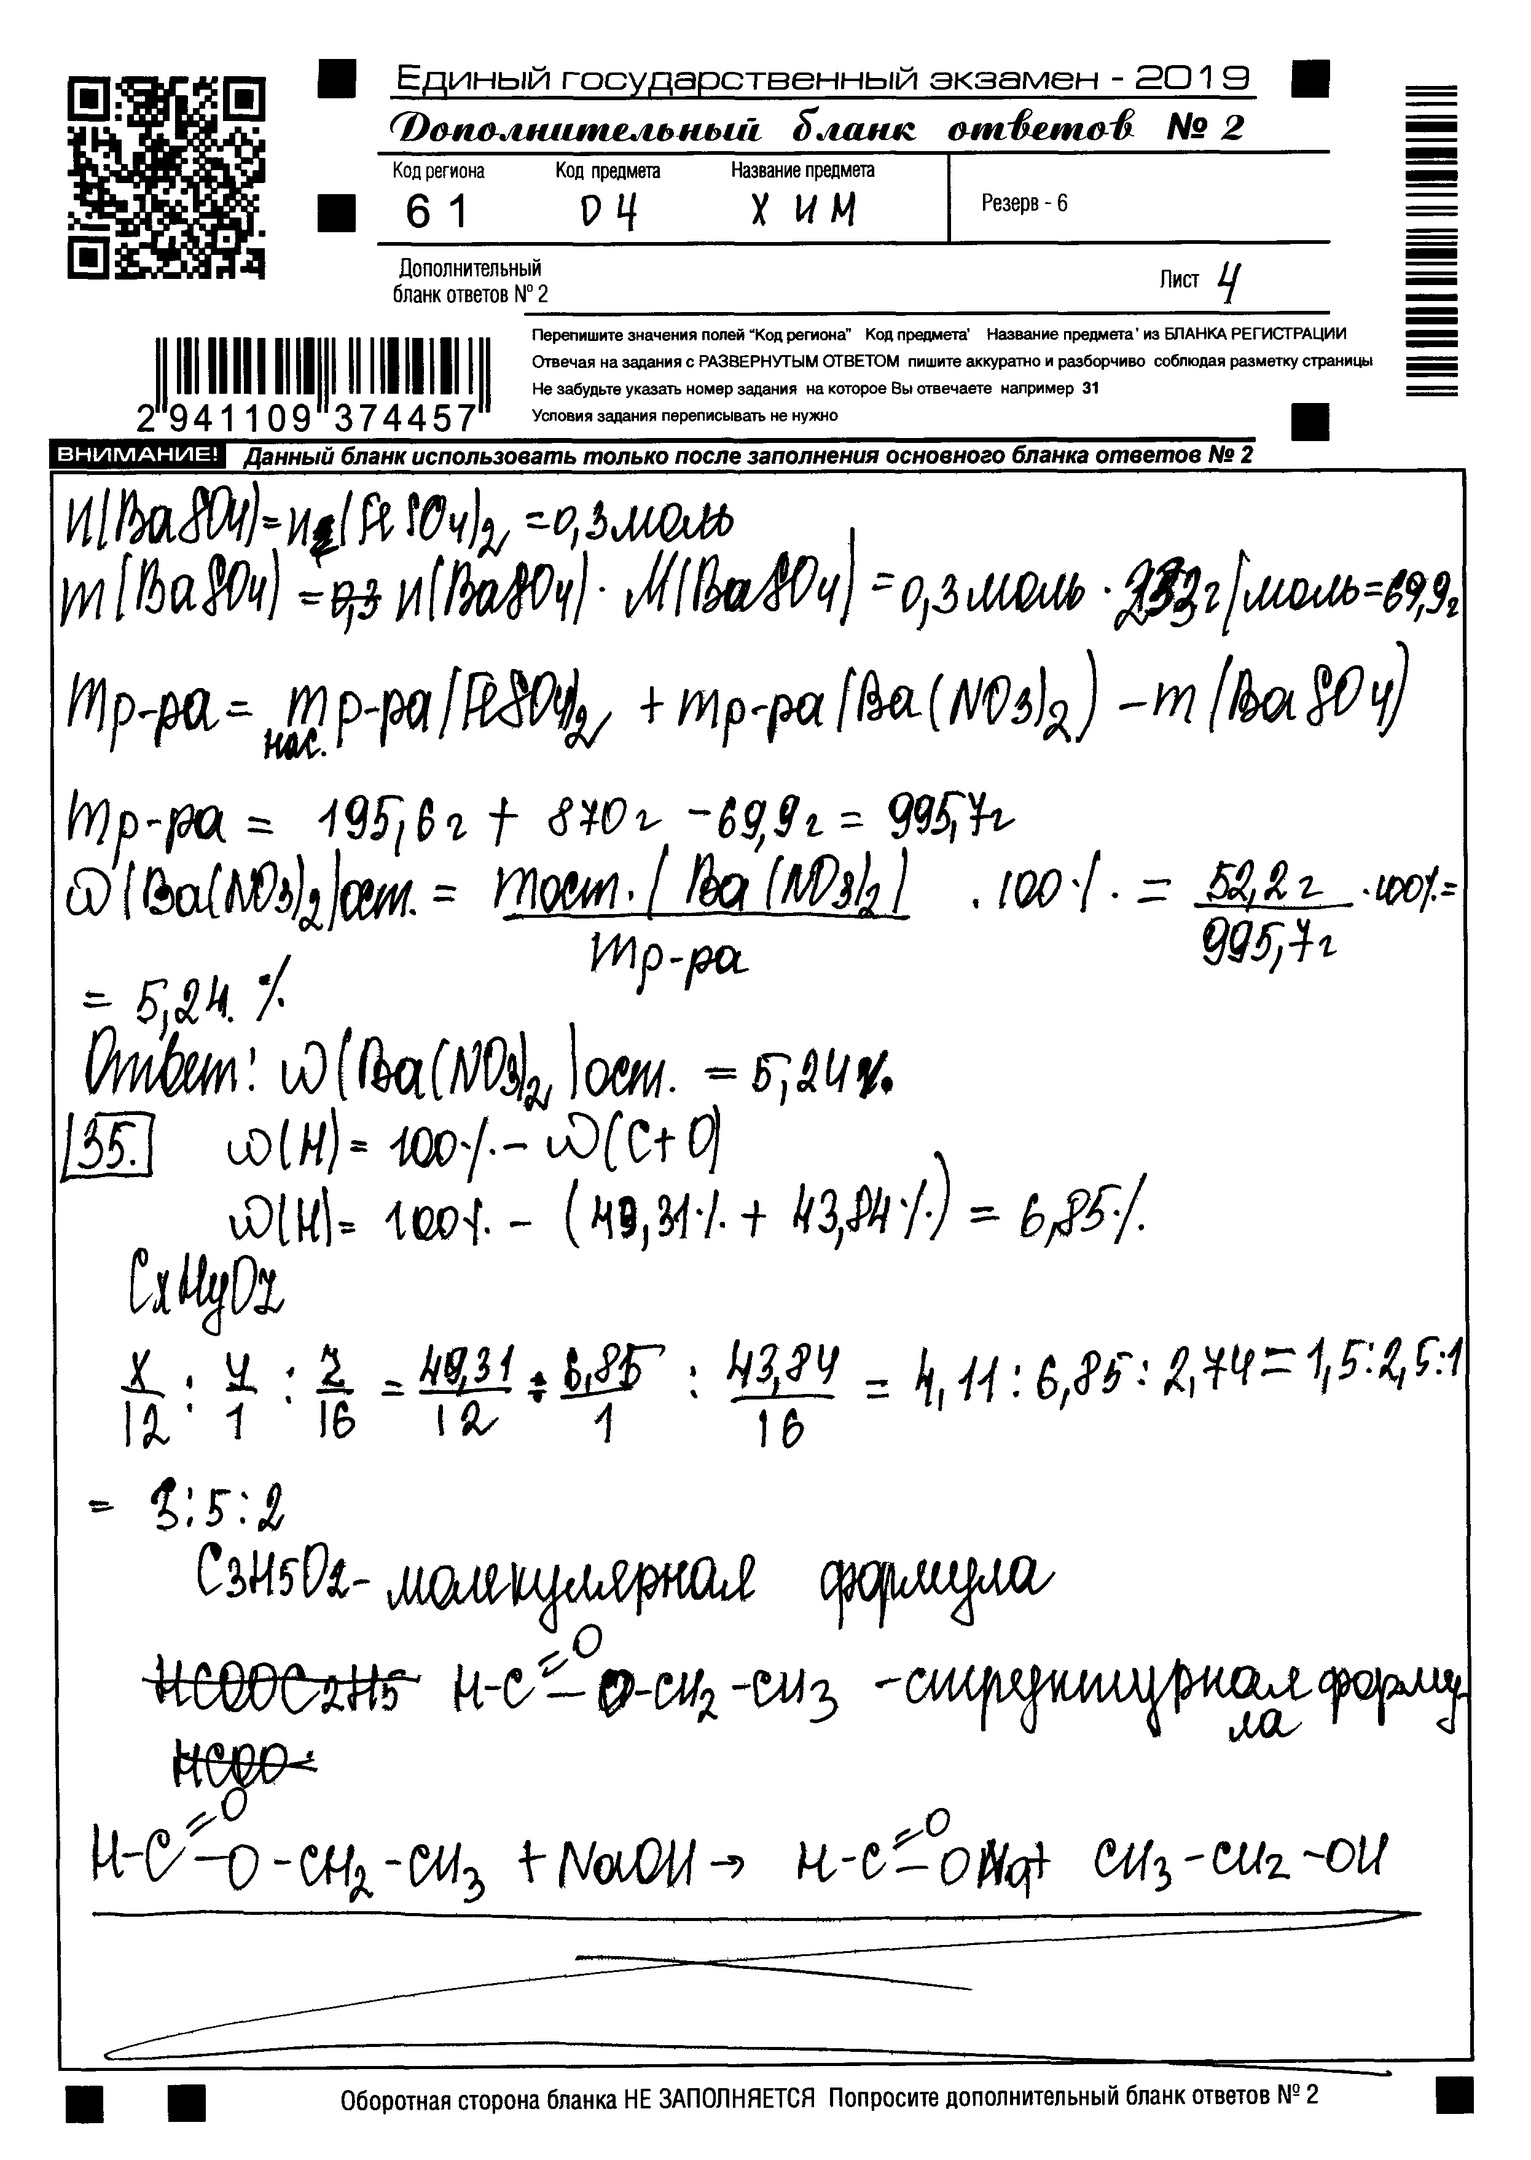 Единый государственный экзамен - 2019
Дополнительный бланк ответов № 2
Код региона Код предмета Название предмета
61 04 ХИМ
Резерв - 6
Дополнительный
бланк ответов № 2
Лист 4
Перепишите значения полей "Код региона" Код предмета' Название предмета' из БЛАНКА РЕГИСТРАЦИИ
Отвечая на задания с РАЗВЕРНУТЫМ ОТВЕТОМ пишите аккуратно и разборчиво соблюдая разметку страницы
Не забудьте указать номер задания на которое Вы отвечаете например 31
Условия задания переписывать не нужно
2 941109 374457
ВНИМАНИЕ! Данный бланк использовать только после заполнения основного бланка ответов № 2
n(BaSO4)=n(FeSO4)2 =0,3моль
m(BaSO4) = 0,3 n(BaSO4) · M(BaSO4) = 0,3моль · 233г/моль=69,9г
mр-ра = mнас. р-ра(FeSO4)2 + mр-ра(Ba(NO3)2) - m(BaSO4)
mр-ра = 195,6г + 870г - 69,9г = 995,7г
ω(Ba(NO3)2)ост. = mост.(Ba(NO3)2) / mр-ра · 100% = 52,2г / 995,7г · 100% =
= 5,24%
Ответ: ω(Ba(NO3)2)ост. = 5,24%.
35. ω(H)= 100% - ω(C+O)
ω(H)= 100% - (49,31% + 43,84%) = 6,85%
CxHyOz
x/12 : y/1 : z/16 = 49,31/12 : 6,85/1 : 43,84/16 = 4,11 : 6,85 : 2,74 = 1,5:2,5:1
= 3:5:2
C3H5O2 - молекулярная формула
HCOOC2H5 H-C=O-O-CH2-CH3 - структурная форму
ла
HCOO-
H-C=O-O-CH2-CH3 + NaOH → H-C=O-ONa+ CH3-CH2-OH
Оборотная сторона бланка НЕ ЗАПОЛНЯЕТСЯ Попросите дополнительный бланк ответов № 2